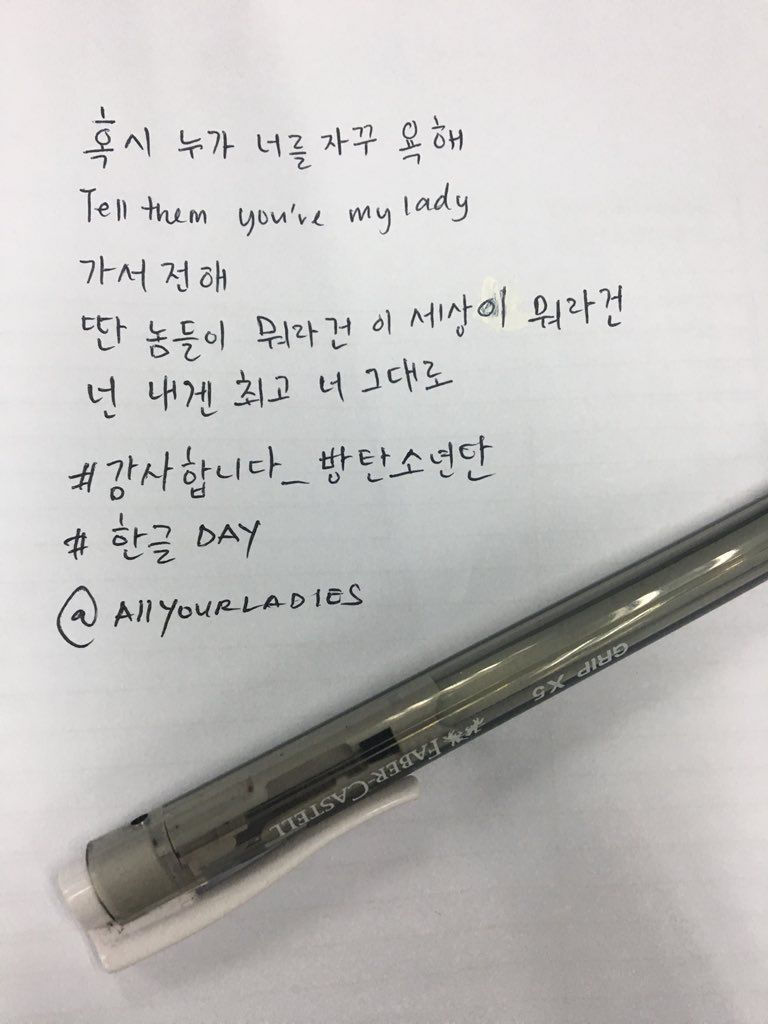 혹시 누가 너를 자꾸 욕해
Tell them you're my lady
가서 전해
딴 놈들이 뭐라건 이 세상이 뭐라건
넌 내겐 최고 너 그대로
#감사합니다_방탄소년단
# 한글 DAY
@AllYOURLADIES
GRIP X5
FABER-CASTELL